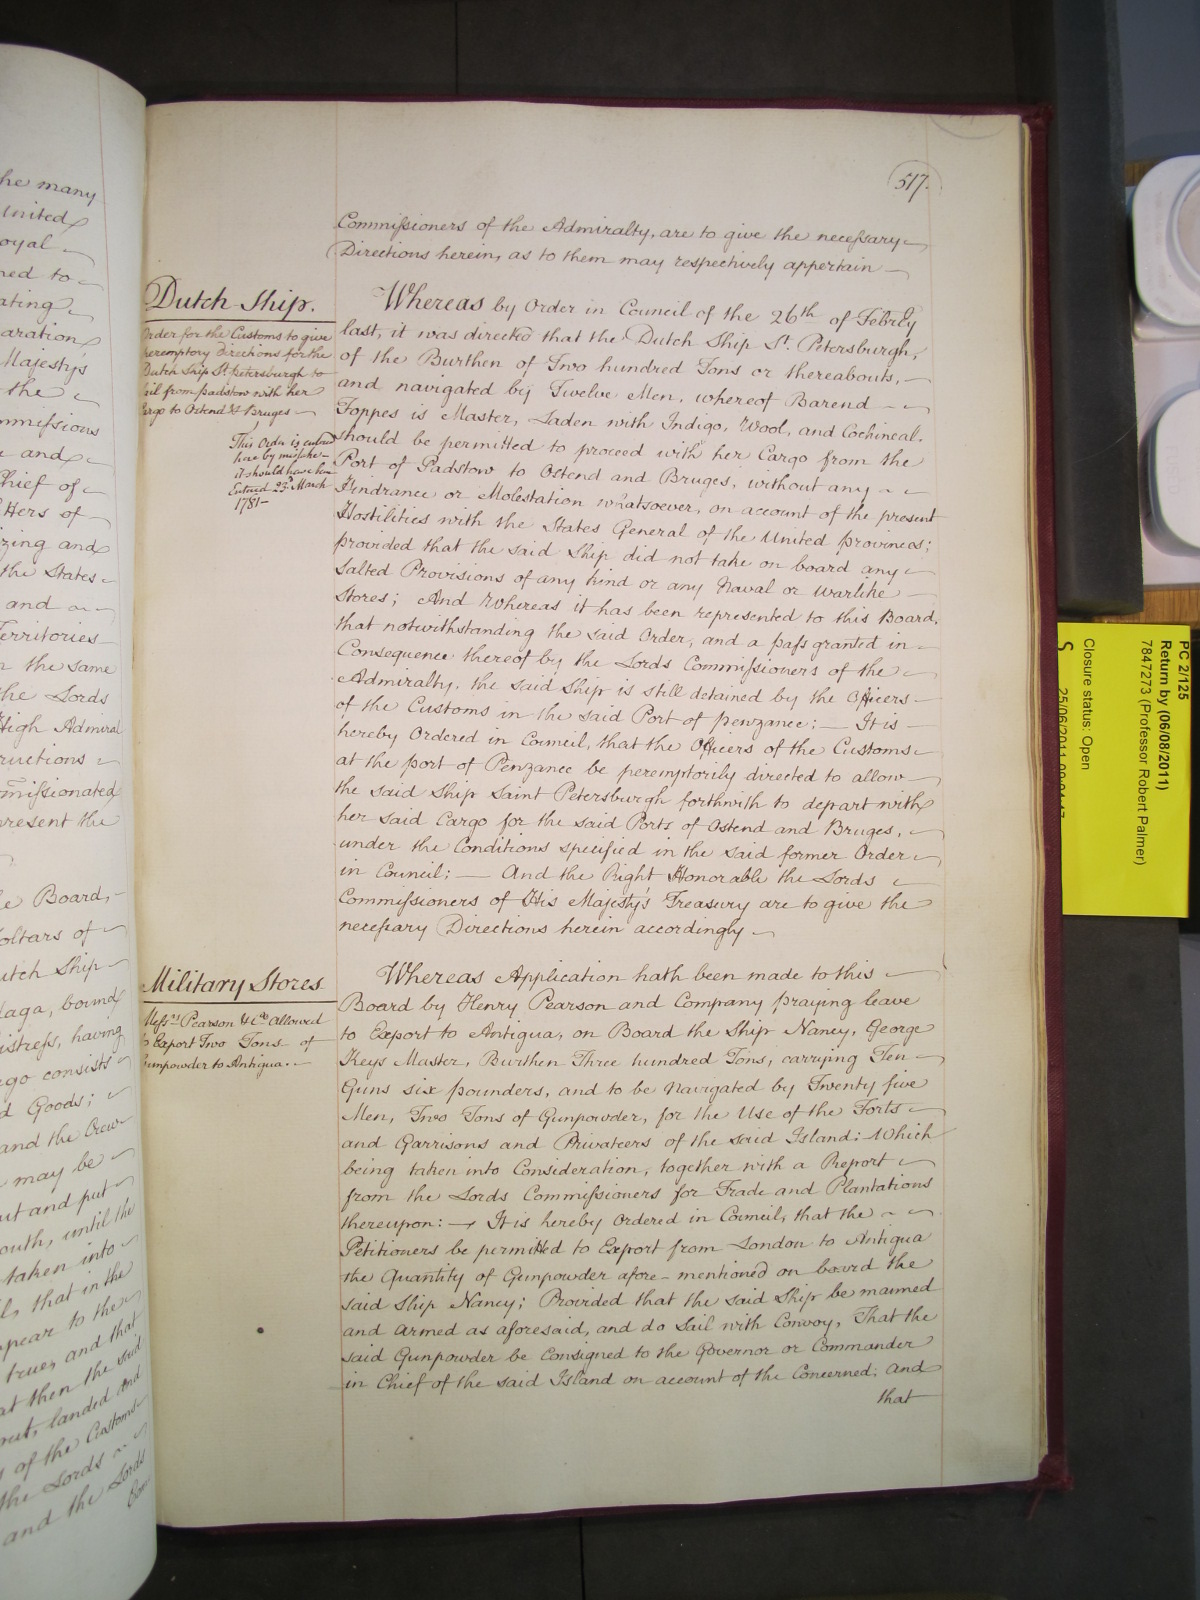 517.
Commissioners of the Admiralty, are to give the necessary
Directions herein, as to them may respectively appertain
Dutch Ship.
Order for the Customs to give
peremptory directions for the
Dutch Ship St. Petersburgh to
sail from Padstow with her
Cargo to Ostend & Bruges
This Order is entered
here by mistake
it should have been
Entred 23d. March
1781
Whereas by Order in Council of the 26th of Febry
last, it was directed that the Dutch Ship St. Petersburgh,
of the Burthen of Two hundred Tons or thereabouts,
and navigated by Twelve Men, whereof Barend
Foppes is Master, Laden with Indigo, Wool, and Cochineal.
should be permitted to proceed with her Cargo from the
Port of Padstow to Ostend and Bruges, without any
Hindrance or Molestation whatsoever, on account of the present
Hostilities with the States General of the United provinces;
provided that the said Ship did not take on board any
Salted Provisions of any kind or any Naval or warlike
Stores; And Whereas it has been represented to this Board,
that notwithstanding the said Order, and a pass granted in
Consequence thereof by the Lords Commissioners of the
Admiralty, the said Ship is still detained by the Officers
of the Customs in the said Port of penzance; It is
hereby Ordered in Council, that the Officers of the Customs
at the port of Penzance be peremptorily directed to allow
the said Ship Saint Petersburgh forthwith to depart with
her said Cargo for the said Ports of Ostend and Bruges,
under the Conditions specified in the said former Order
in Council; And the Right Honorable the Lords
Commissioners of His Majesty's Treasury are to give the
necessary Directions herein accordingly
Military Stores
Messrs Pearson & Co Allowed
to Export Two Tons of
Gunpowder to Antigua.
Whereas Application hath been made to this
Board by Henry Pearson and Company praying leave
to Export to Antigua, on Board the Ship Nancy, George
Keys Master, Burthen Three hundred Tons, carrying Ten
Guns six pounders, and to be Navigated by Twenty five
Men, Two Tons of Gunpowder, for the Use of the Forts
and Garrisons and Privateers of the said Island: Which
being taken into Consideration, together with a Report
from the Lords Commissioners for Trade and Plantations
thereupon: It is hereby Ordered in Council, that the
Petitioners be permitted to Export from London to Antigua
the Quantity of Gunpowder afore-mentioned on board the
said Ship Nancy; Provided that the said Ship be manned
and armed as aforesaid, and do Sail with Convoy, That the
said Gunpowder be Consigned to the Governor or Commander
in Chief of the said Island on account of the Concerned; And
that
he many
United
oyal
ned to
ating
aration
Majesty's
the
mmissions
and
Chief of
tters of
zing and
the States
and
Territories
n the same
the Lords
High Admiral
ructions
mmissionated
present the
Board,
oltars of
utch Ship
laga, bound
istress, having
go consists
d Goods;
and the Crew
may be
ut and put
outh, until the
taken into
that in the
ppear to the
true, and that
at then the said
out, landed and
of the Customs
the Lords
and the Lords
Com
PC 2/125
Return by (06/08/2011)
7847273 (Professor Robert Palmer)
Closure status: Open
S